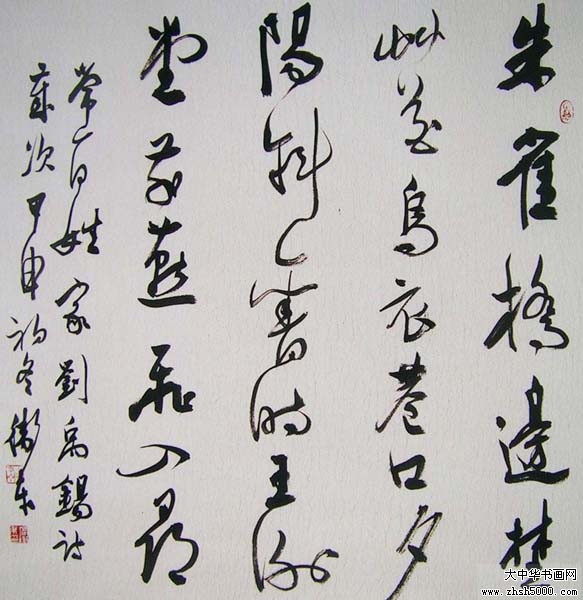 朱雀橋邊埜
艸花烏衣巷口夕
陽斜舊時王謝
堂前燕飛入尋
常百姓家劉禹錫詩
歲次甲申初冬衛東
大中华书画网
www.zhsh5000.com